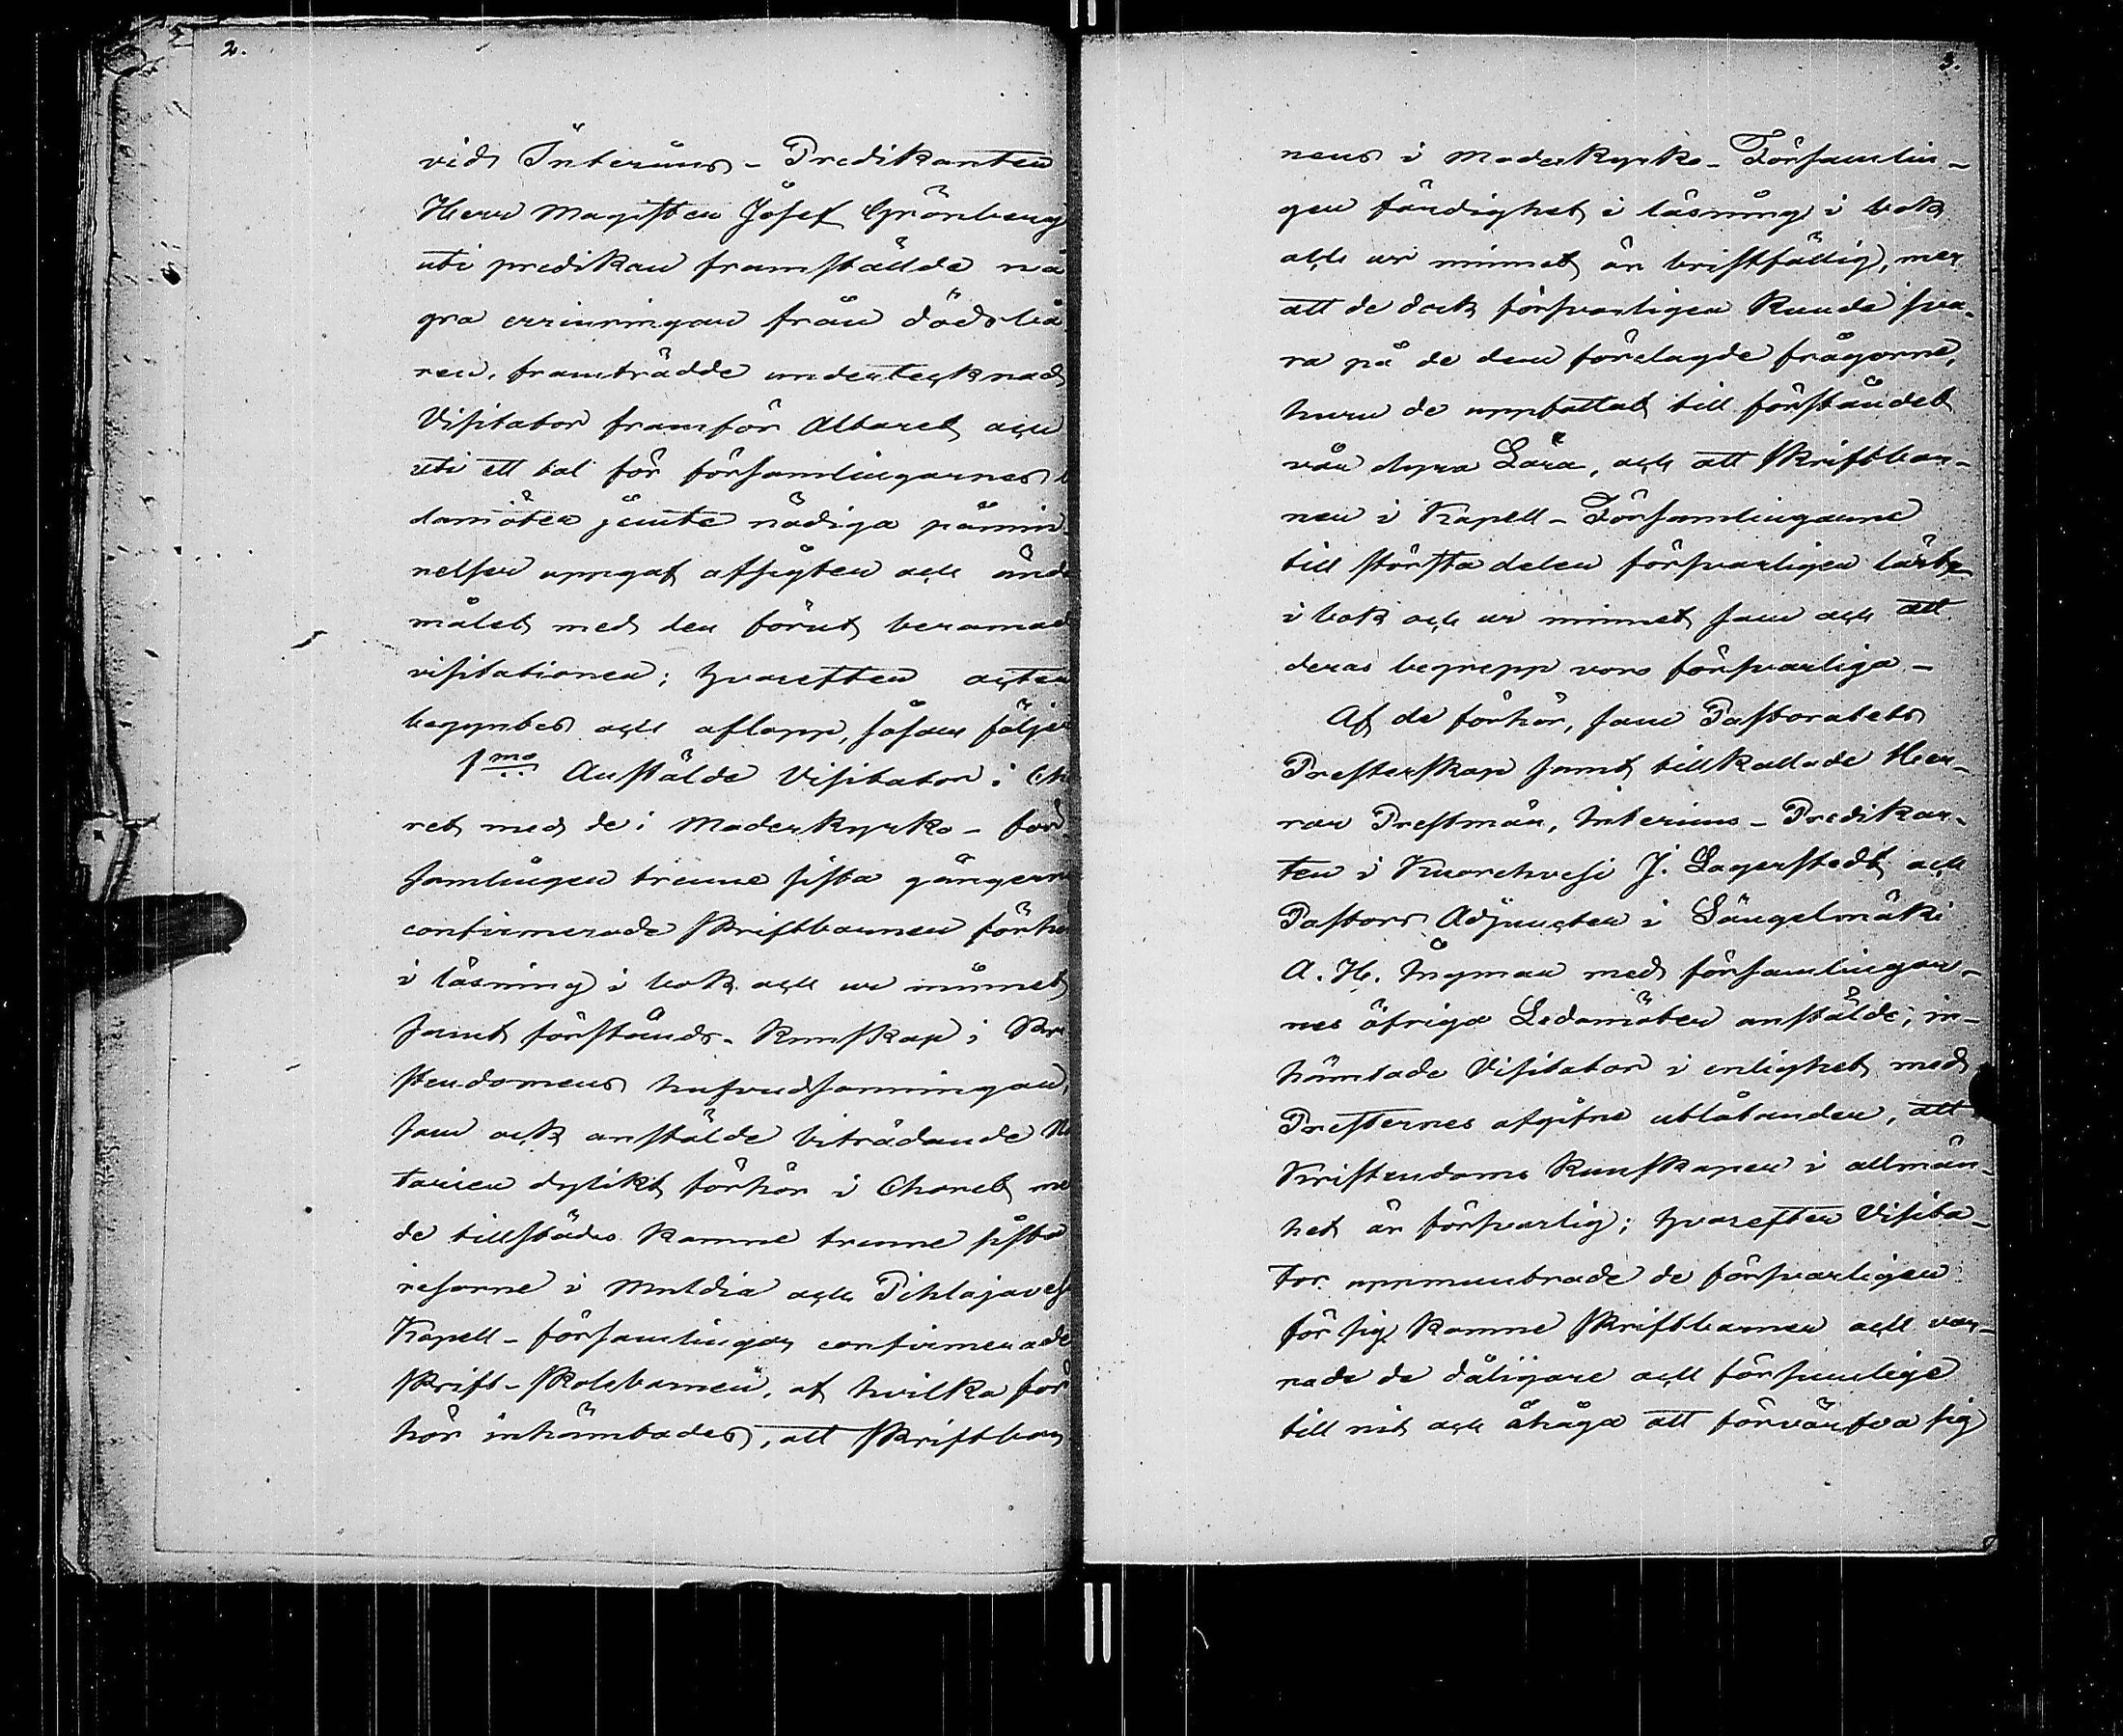 2.
vid Interims-Predikanten
Herr Magister Josef Grönberg
uti predikan framställde nå
gra erinringar från dödsbå
ren, framträdde undertecknad
Visitator framför Altaret och
uti ett tal för församlingarnes
damöter jemte nödiga påmin-
nelser uppgaf afsigten och änd
målet med den förut beramad
visitationen; hvarefter acten
begyntes och aflopp, såsom följer
1mo Anstälde Visitator i Ch
ret med de i Moderkyrko-för
samlingen trenne sista gångerna
confirmerade skriftbarnen förhö
i läsning i bok och ur minnet
samt förstånds-kunskap i Kri
stendomens hufvudsanningar,
som ock anstälde biträdande No
tarien dylikt förhör i Choret me
de tillstädes komne trenne sista
resorne i Multia och Pihlajaves
Kapell-församlingar confirmerade
Skrift-skolebarnen, af hvilka för
hör inhämtades, att skriftbar
3.
nens i Moderkyrko-Församlin-
gen färdighet i läsning i bok
och ur minnet är bristfällig, men
att de dock försvarligen kunde sva-
ra på de dem förelagde frågorne,
huru de uppfattat till förståndet
vår dyra Lära, och att skriftbar-
nen i Kapell-Församlingarne
till största delen försvarligen läste
i bok och ur minnet som och att
deras begrepp voro försvarliga-
Af de förhör, som Pastoratets
Presterskap samt tillkallade Her-
rar Prestmän, Interims-Predikan-
ten i Kuorehvesi J. Lagerstedt och
Pastors Adjuncten i Längelmäki
A. H. Ingman med församlingar-
nes öfriga Ledamöter anstälde; in-
hämtade Visitator i enlighet med
Presternes afgifne utlåtanden, att
Kristendoms kunskapen i allmän-
het är försvarlig; hvarefter Visita-
tor uppmuntrade de försvarligen
för sig komne skriftbarnen och var-
nade de dåligare och försumlige
till nit och åhåga att förvärfva sig